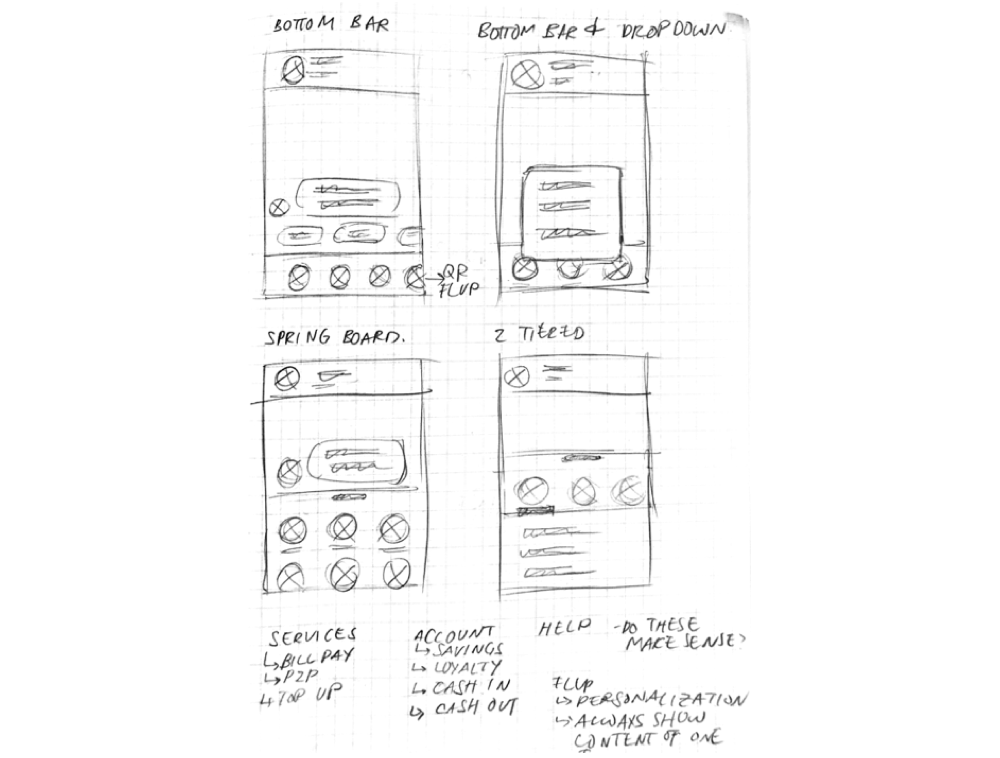 BOTTOM BAR
BOTTOM BAR & DROPDOWN
QR
FLUP
SPRING BOARD.
2 TIERED
SERVICES
↳BILL PAY
↳P2P
↳TOP UP
ACCOUNT
↳SAVINGS
↳LOYALTY
↳CASH IN
↳CASH OUT
HELP
-DO THESE
MAKE SENSE?
FLUP
↳PERSONALIZATION
↳ALWAYS SHOW
CONTENT OF ONE